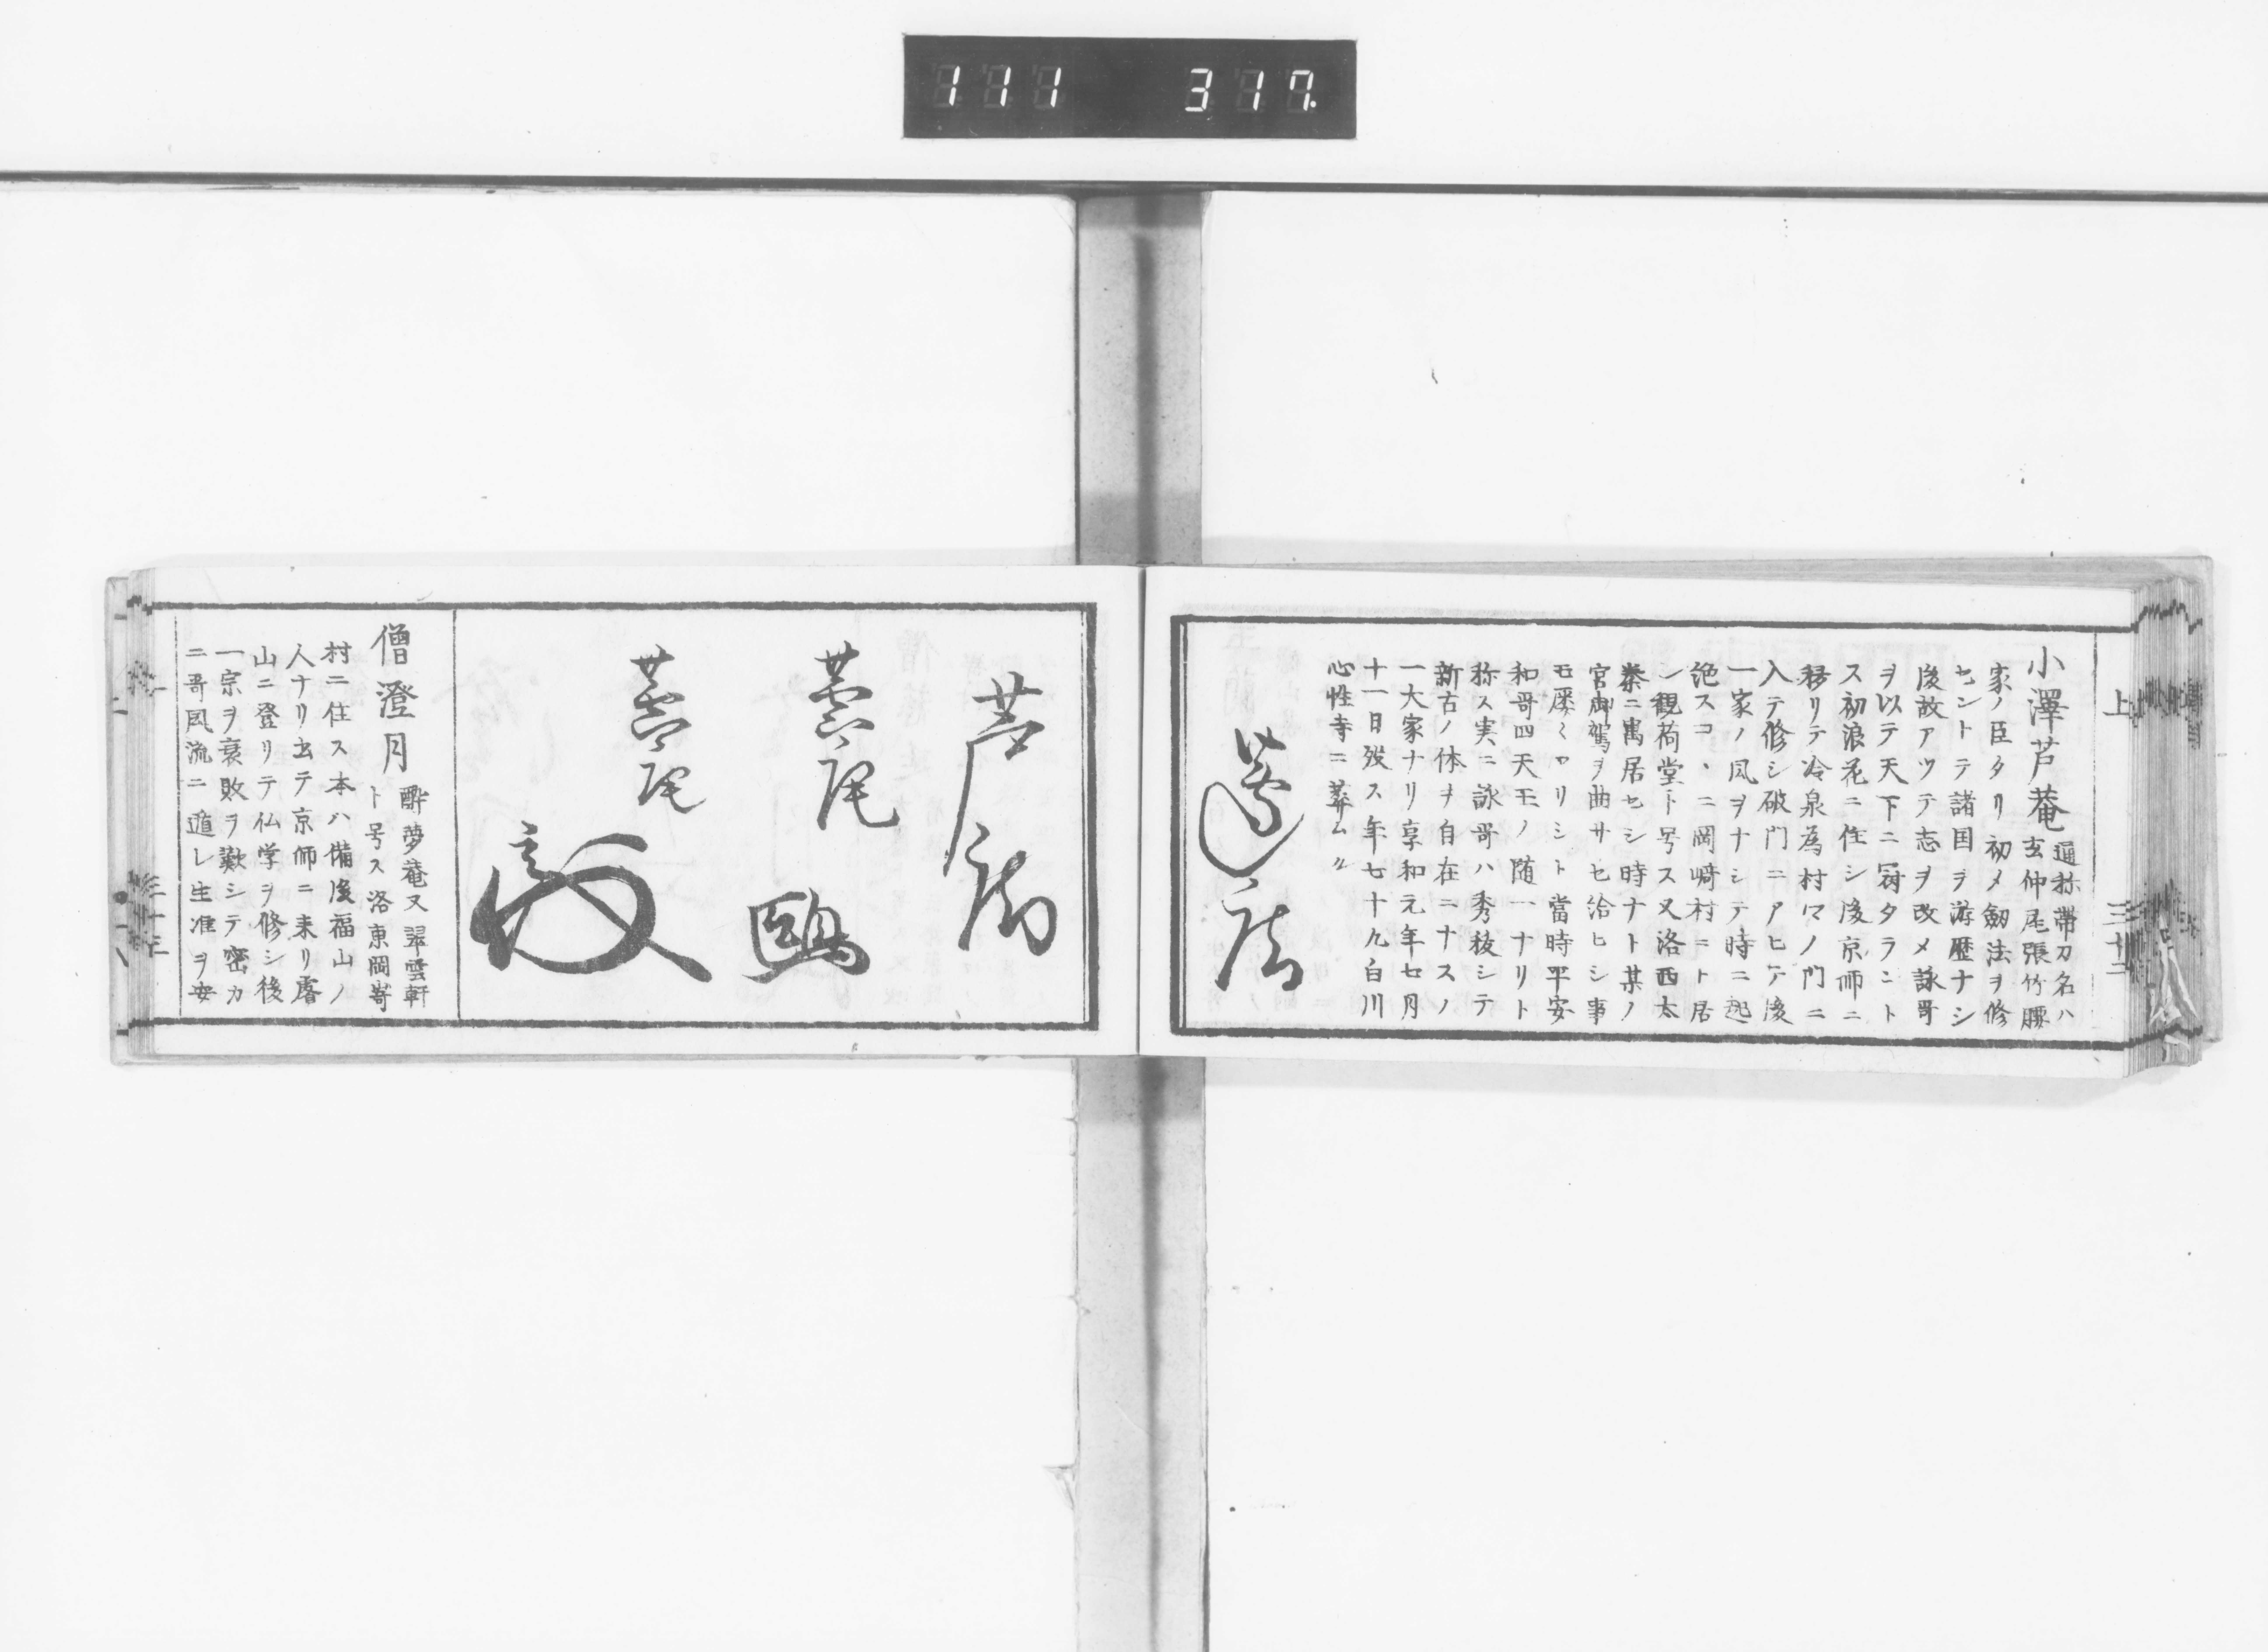 111 317
上
三十二
小澤芦菴
通称帯刀名ハ
玄仲尾張竹腰
家ノ臣タリ初メ劔法ヲ修
セントテ諸国ヲ游歴ナシ
後故アツテ志ヲ改メ詠哥
ヲ以テ天下ニ冠タラント
ス初浪花ニ住シ後京師ニ
移リテ冷泉為村卿ノ門ニ
入テ修シ破門ニアヒテ後
一家ノ風ヲナシテ時ニ起
絶スコヽニ岡﨑村ニト居
シ観荷堂ト号ス又洛西太
秦ニ寓居セシ時ナト某ノ
宮御駕ヲ曲サセ給ヒシ事
モ屡々ヤリシト當時平安
和哥四天王ノ随一ナリト
称ス実ニ詠哥ハ秀枝シテ
新古ノ体ヲ自在ニナスノ
一大家ナリ享和元年七月
十一日歿ス年七十九白川
心性寺ニ葬ムル
芦庵
僧澄月
酔夢菴又翠雲軒
ト号ス洛東岡嵜
村ニ住ス本ハ備後福山ノ
人ナリ出テ京師ニ来リ睿
山ニ登リテ仏学ヲ修シ後
一宗ヲ衰敗ヲ歎シテ密カ
ニ哥風流ニ遁レ生涯ヲ安
三十三